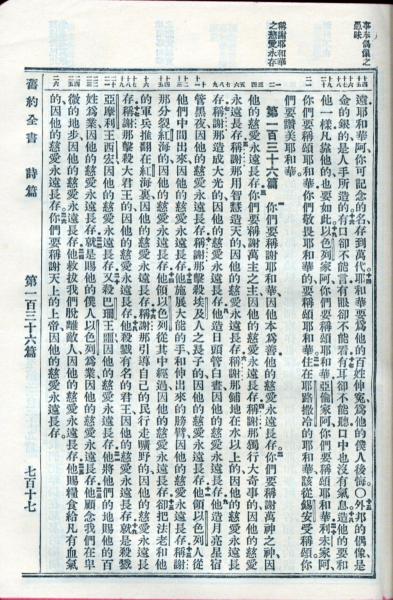 事奉偶像之
愚昧
稱謝耶和華
之慈愛永存
遠耶和華阿你可記念的名存到萬代耶和華要爲他的百姓伸冤爲他的僕人後悔〇外邦的偶像是
金的銀的是人手所造的有口卻不能言有眼卻不能看有耳卻不能聽口中也沒有氣息造他的要和
他一樣凡靠他的也要如此以色列家阿你們要稱頌耶和華亞倫家阿你們要稱頌耶和華利未家阿
你們要稱頌耶和華你們敬畏耶和華的要稱頌耶和華住在耶路撒冷的耶和華該從錫安受稱頌你
們要讚美耶和華。
第一百三十六篇 你們要稱謝耶和華因他本爲善他的慈愛永遠長存你們要稱謝萬神之神因
他的慈愛永遠長存你們要稱謝萬主之主因他的慈愛永遠長存稱謝那獨行大奇事的因他的慈愛
永遠長存稱謝那用智慧造天的因他的慈愛永遠長存稱謝那鋪地在水以上的因他的慈愛永遠長
存稱謝那造成大光的因他的慈愛永遠長存他造日頭管白晝因他的慈愛永遠長存他造月亮星宿
管黑夜因他的慈愛永遠長存稱謝那擊殺埃及人之長子的因他的慈愛永遠長存他領以色列人從
他們中間出來因他的慈愛永遠長存他施展大能的手和伸出來的膀臂因他的慈愛永遠長存稱謝
那分裂紅海的因他的慈愛永遠長存他領以色列從其中經過因他的慈愛永遠長存卻把法老和他
的軍兵推翻在紅海裏因他的慈愛永遠長存稱謝那引導自己的民行走曠野的因他的慈愛永遠長
存稱謝那擊殺大君王的因他的慈愛永遠長存他殺戮有名的君王因他的慈愛永遠長存就是殺戮
亞摩利王西宏因他的慈愛永遠長存又殺巴珊王噩因他的慈愛永遠長存他將他們的地賜他的百
姓爲業因他的慈愛永遠長存就是賜他的僕人以色列爲業因他的慈愛永遠長存他顧念我們在卑
微的地步因他的慈愛永遠長存他救拔我們脫離敵人因他的慈愛永遠長存他賜糧食給凡有血氣
的因他的慈愛永遠長存你們要稱謝天上的上帝因他的慈愛永遠長存。
舊約全書 詩篇 第一百三十六篇 七百十七